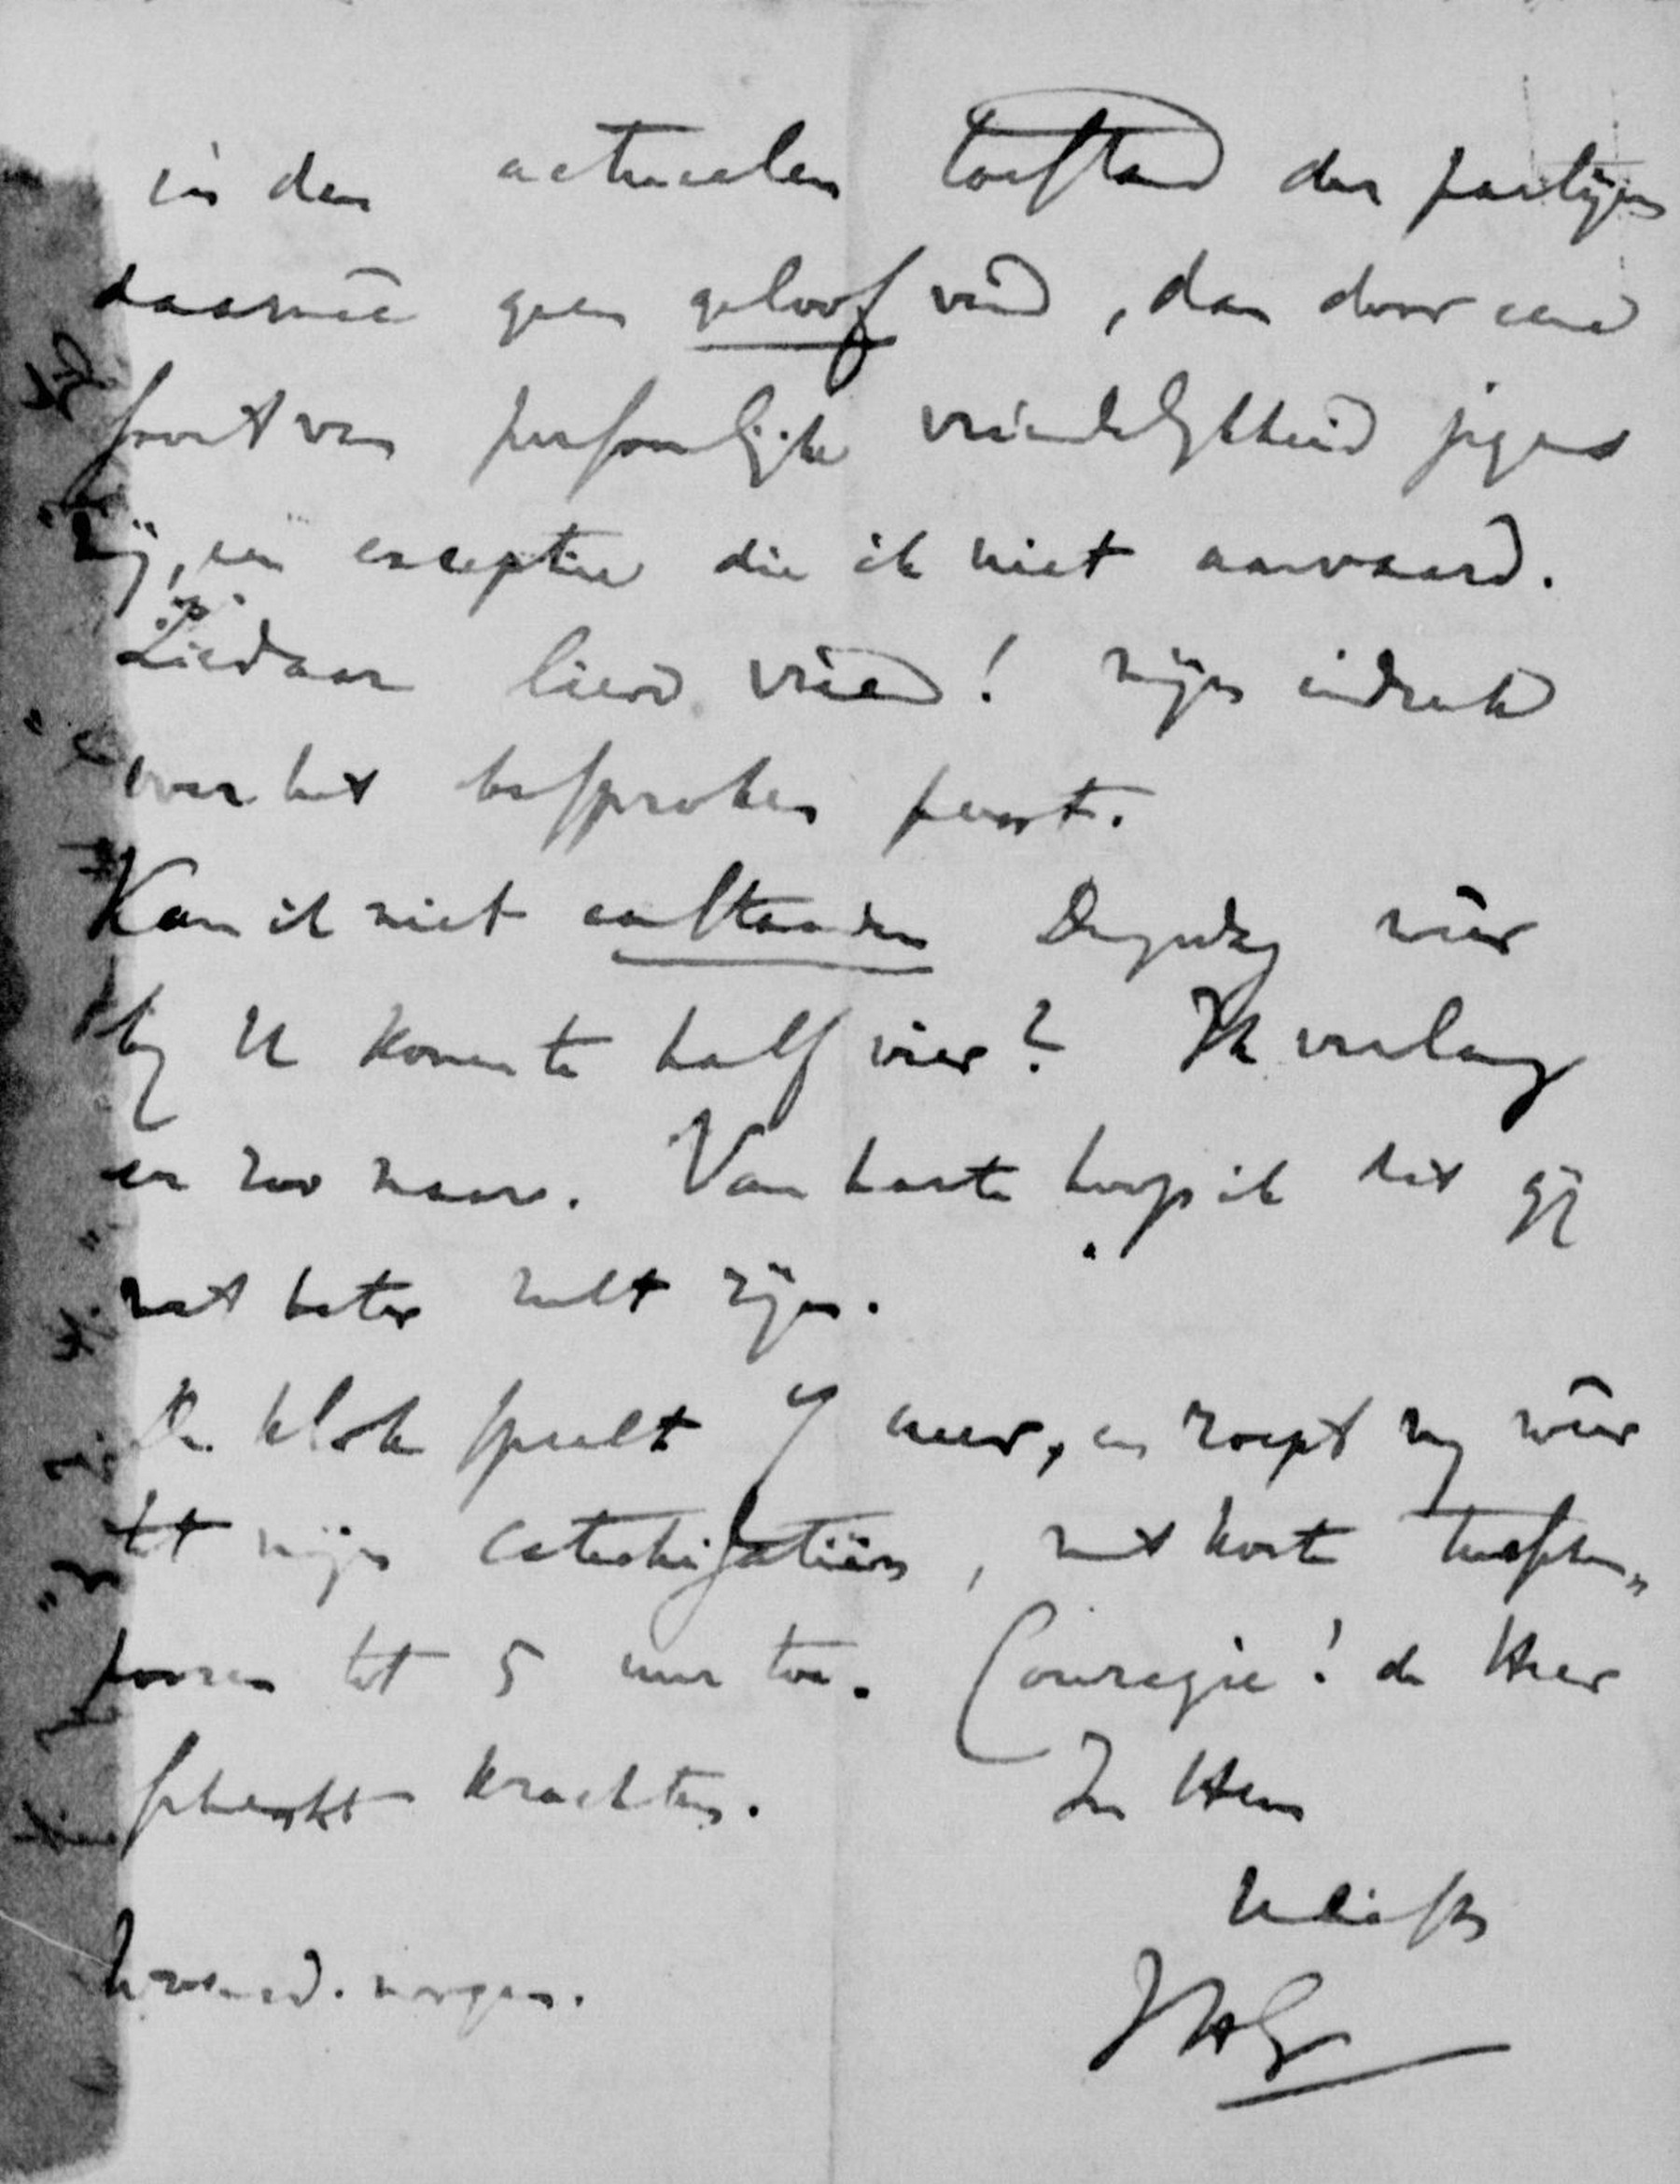 in den actueelen toestand der partijen
daarmeê geen geloof vind, dan door eene
soort van persoonlijke vriendelijkheid jegens
mij, een exceptie die ik niet aanvaard.
Ziedaar lieve vriend! mijn indruk
over het besproken punt.
Kan ik niet aanstaanden Dingsdag wêer
bij U komen te half vier? Ik verlang
er zoo naar. Van harte hoop ik dat gij
wat beter zult zijn.
De klok speelt 9 uur, en roept mij wêer
tot mijn catechisatiën, met korte tusschen„
poozen tot 5 uur toe. Couragie! de Heer
schenkt krachten. In Hem
Uliefh
Woensd. morgen.